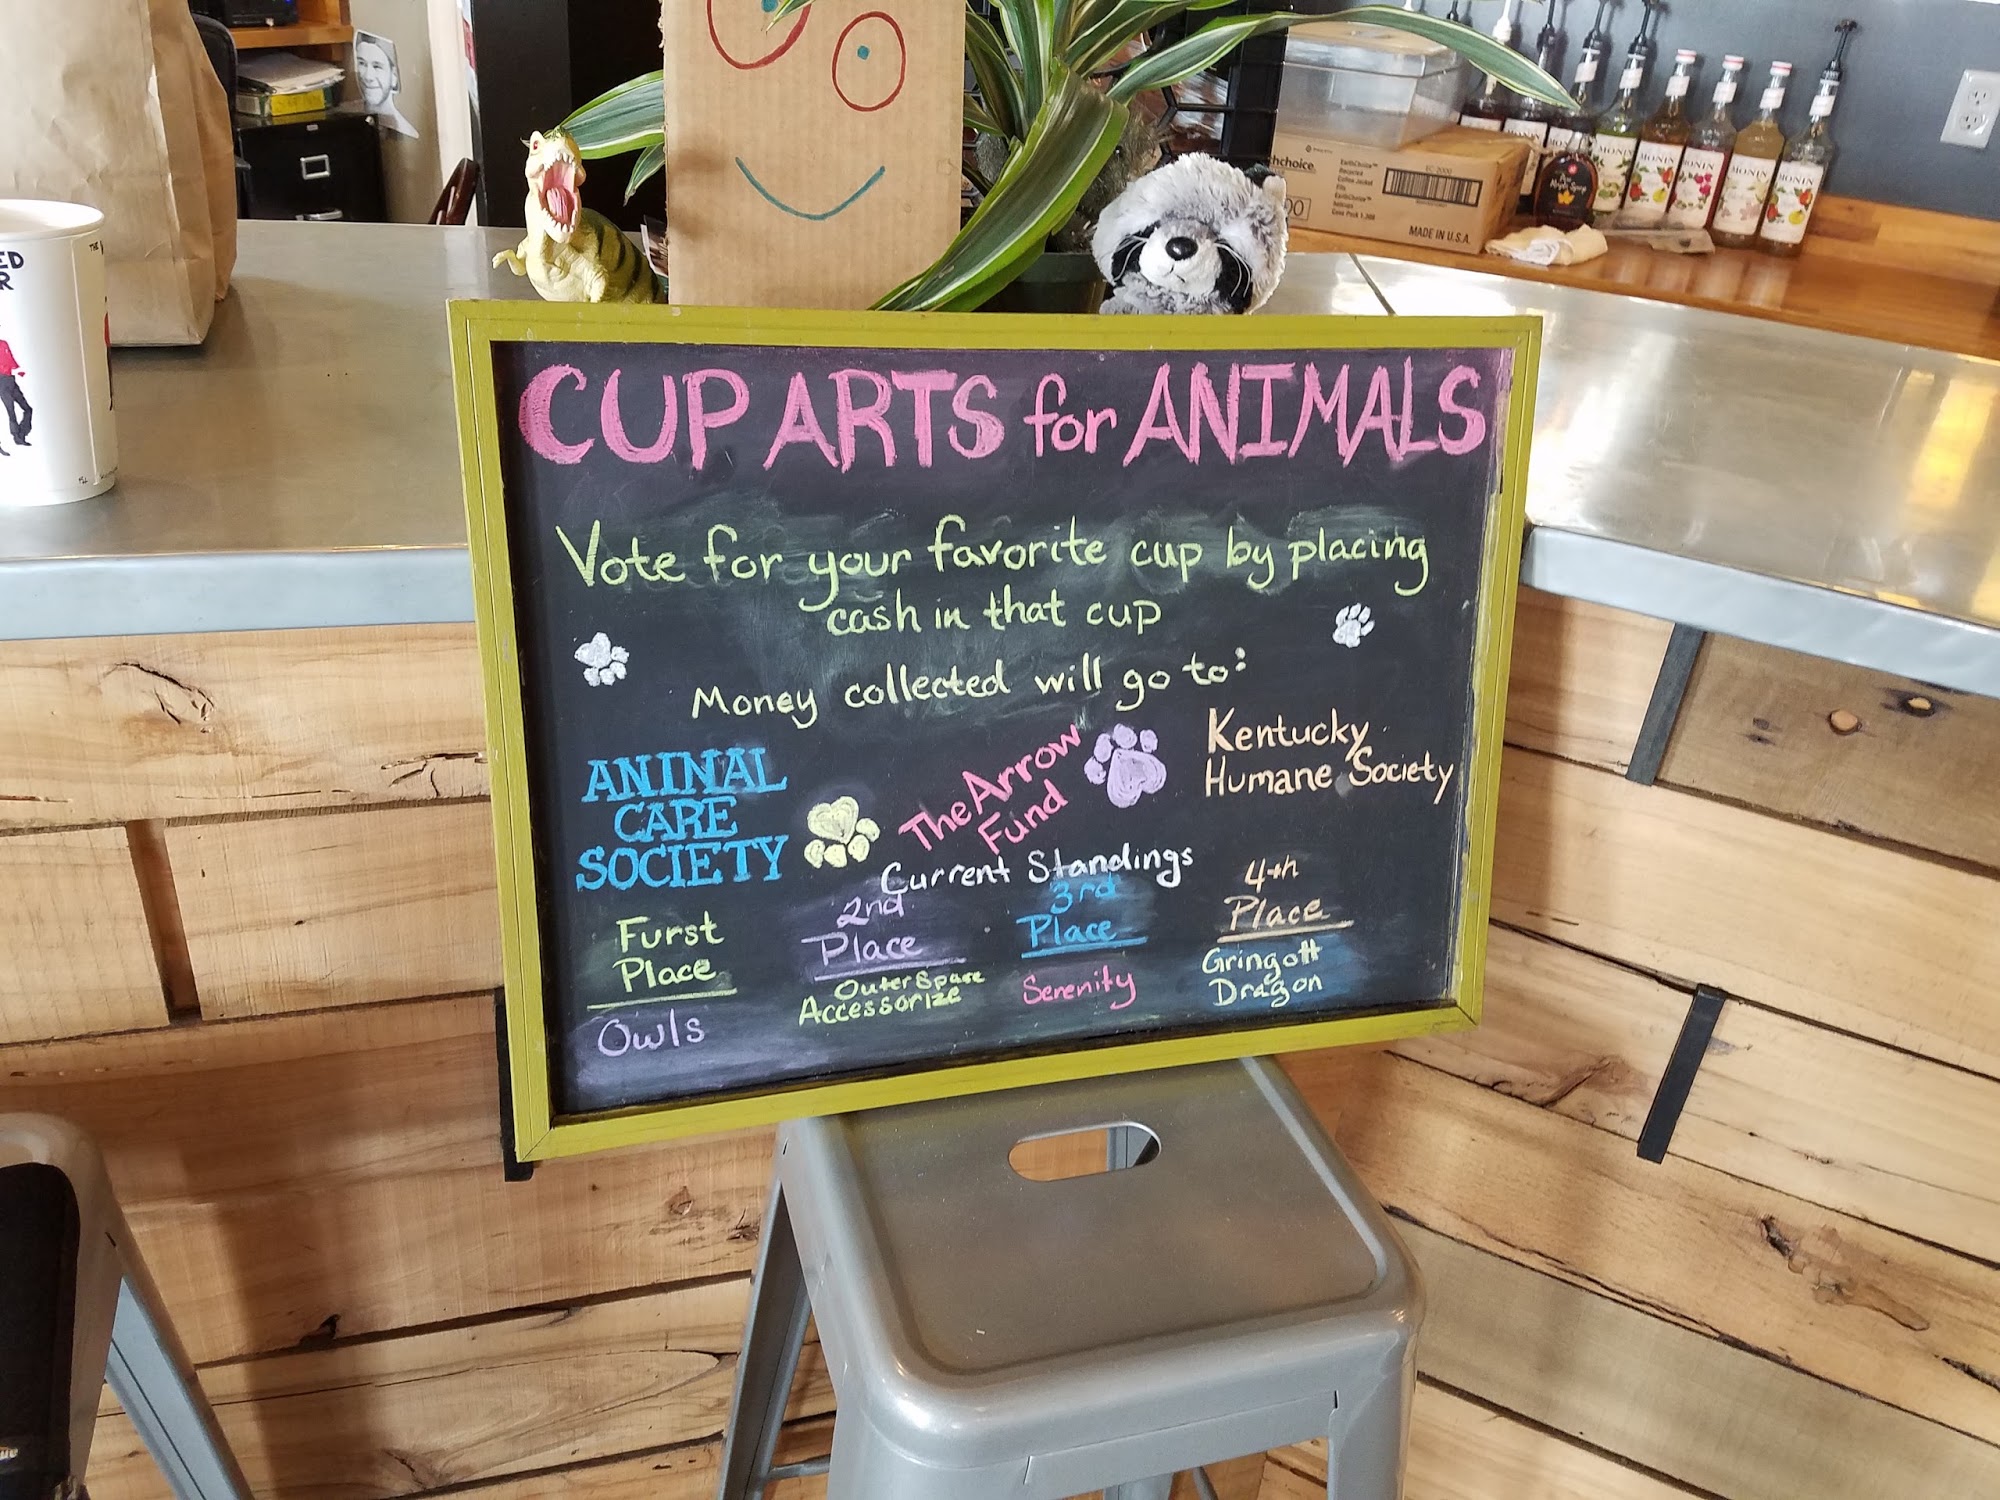 CUP ARTS for ANIMALS
Vote for your favorite cup by placing
cash in that cup
Money collected will go to:
ANINAL
CARE
SOCIETY
The Arrow
Fund
Kentucky
Humane Society
Current Standings
Furst
Place
Owls
2nd
Place
Outer Spase
Accessorize
3rd
Place
Serenity
4th
Place
Gringott
Dragon
hchoice
EarthChoice
Recycled
Coffee Jacket
EC-2000
MADE IN U.S.A.
MONIN
MONIN
MONIN
MONIN
MONIN
ED
R
THE